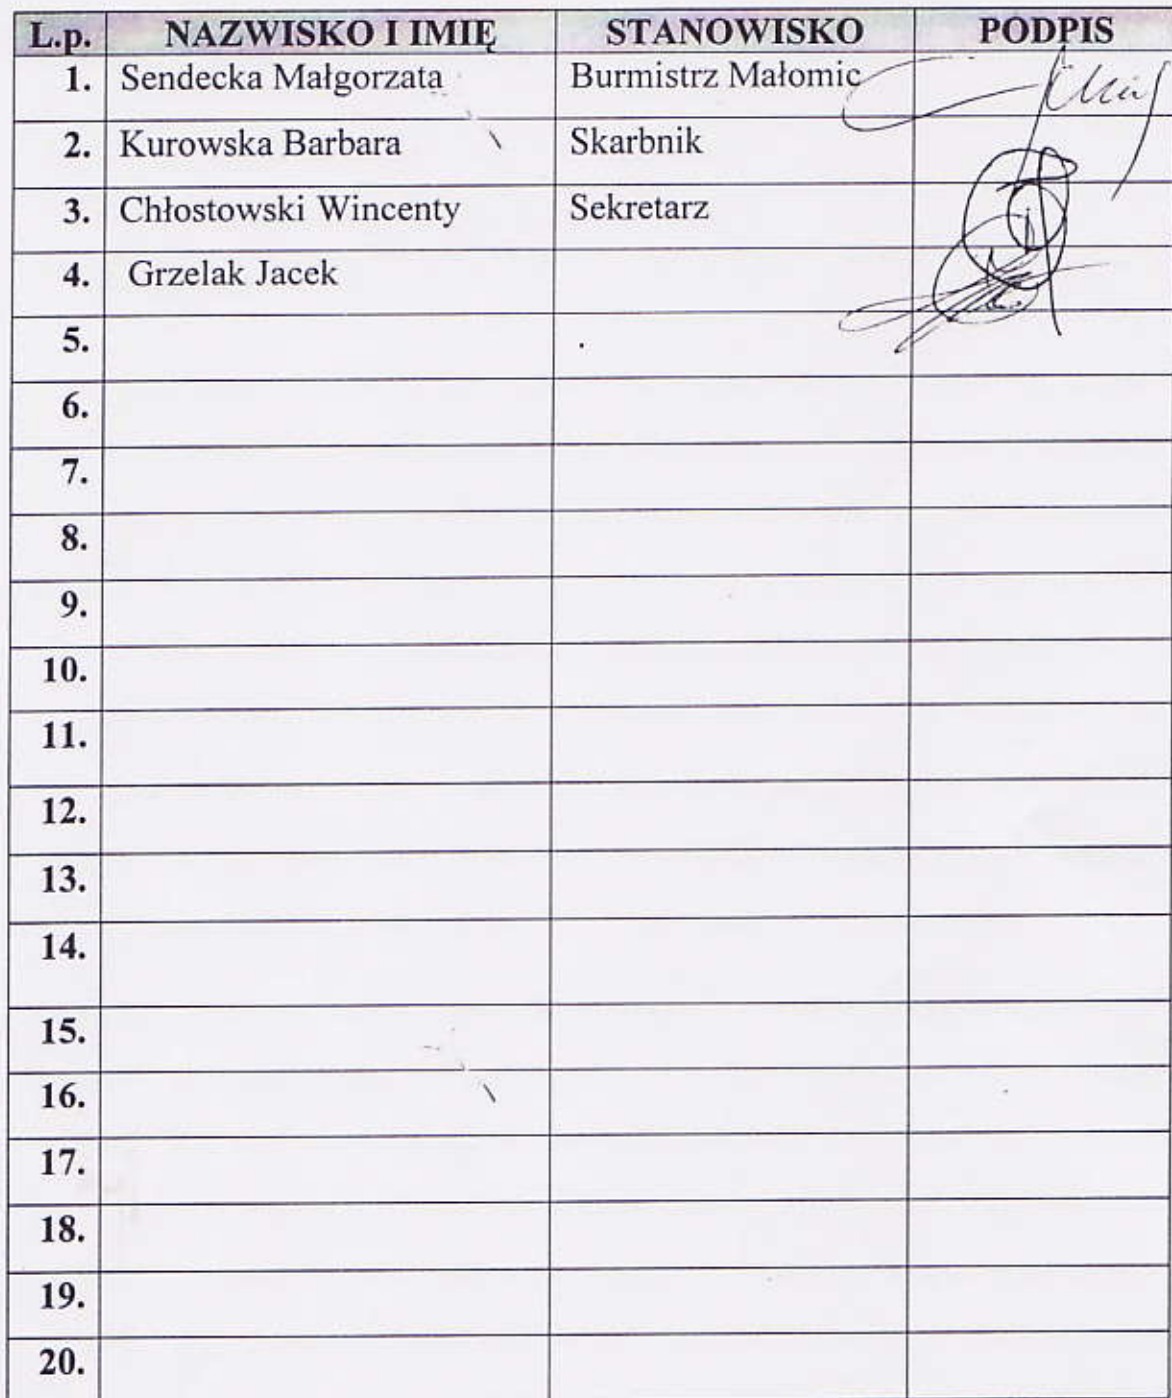 L.p. NAZWISKO I IMIĘ STANOWISKO PODPIS
1. Sendecka Małgorzata Burmistrz Małomic
2. Kurowska Barbara Skarbnik
3. Chłostowski Wincenty Sekretarz
4. Grzelak Jacek
5.
6.
7.
8.
9.
10.
11.
12.
13.
14.
15.
16.
17.
18.
19.
20.